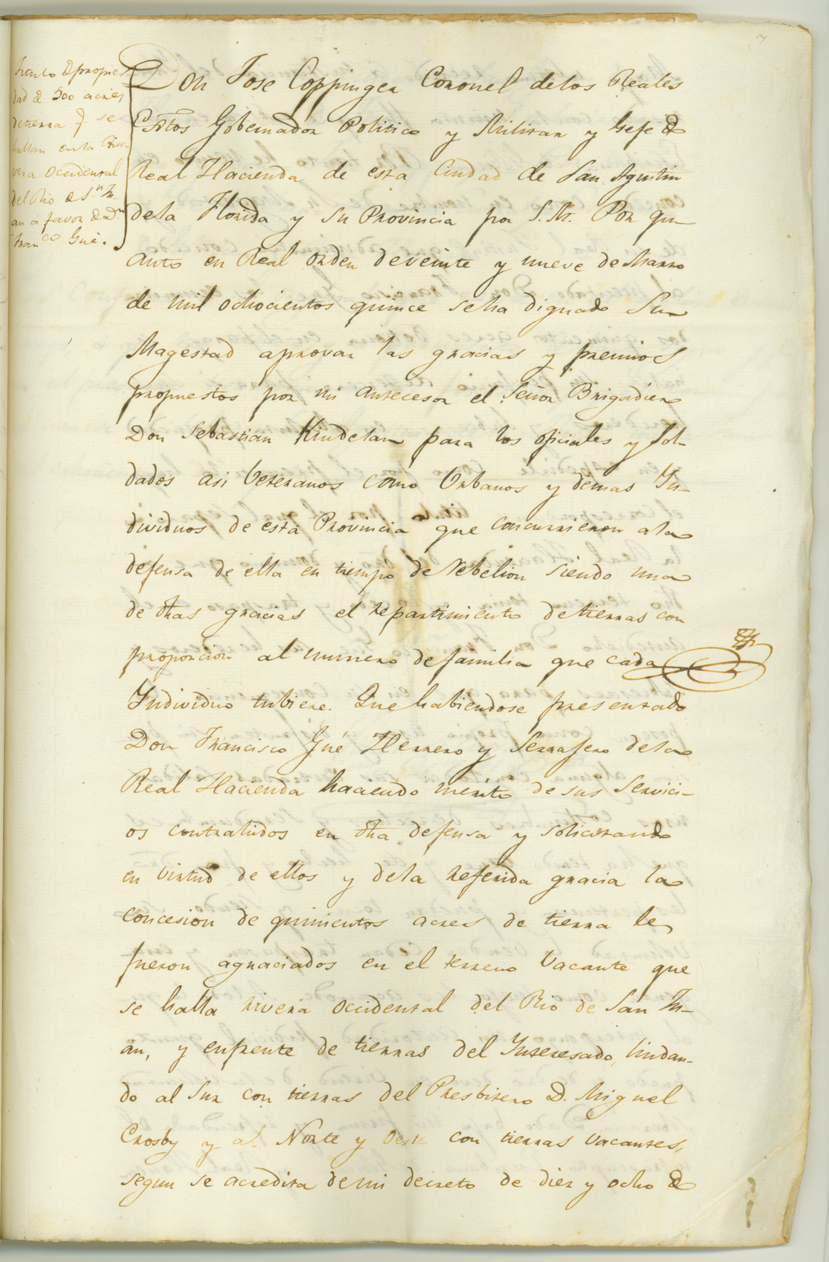 Titulo de propie-
dad de 500 acres
de tierra q se
hallan en la Rive-
vera Occidental
del Rio de Sn Ju-
an á favor de Dn
Franco Gué.
Don Jose Coppinger Coronel delos Reales
Extos Gobernador Politico y Militar y Gefe de
Real Hacienda de esta Ciudad de San Agustin
dela Florida y su Provincia por S. M. Por qu-
anto en Real orden deveinte y nueve de Marzo
de mil ochocientos quince seha dignado Su
Magestad aprovar las gracias y premios
propuestos por mi antecesor el Señor Brigadier
Don Sebastian Kindelan para los oficiales y sol-
dados asi Veteranos como Urbanos y demas In-
dividuos de esta Provincia que concurrieron ala
defensa de ella en tiempo de Rebelion siendo una
de dhas gracias el repartimiento de tierras con
proporcion al numero defamilia que cada
Individuo tubiere. Que habiendose presentado
Don Francisco Gué Herrero y Serrajero dela
Real Hacienda haciendo merito de sus Servici-
os contrahidos en dha defensa y solicitando
en virtud de ellos y dela referida gracia la
concesion de quinientos acres de tierra le
fueron agraciados en el terreno Vacante que
se halla rivera occidental del Rio de San Ju-
an, y enfrente de tierras del Interesado, lindan-
do al Sur con tierras del Presbitero D. Miguel
Crosby y al Norte y Oeste con tierras vacantes,
segun se acredita de mi decreto de diez y ocho de